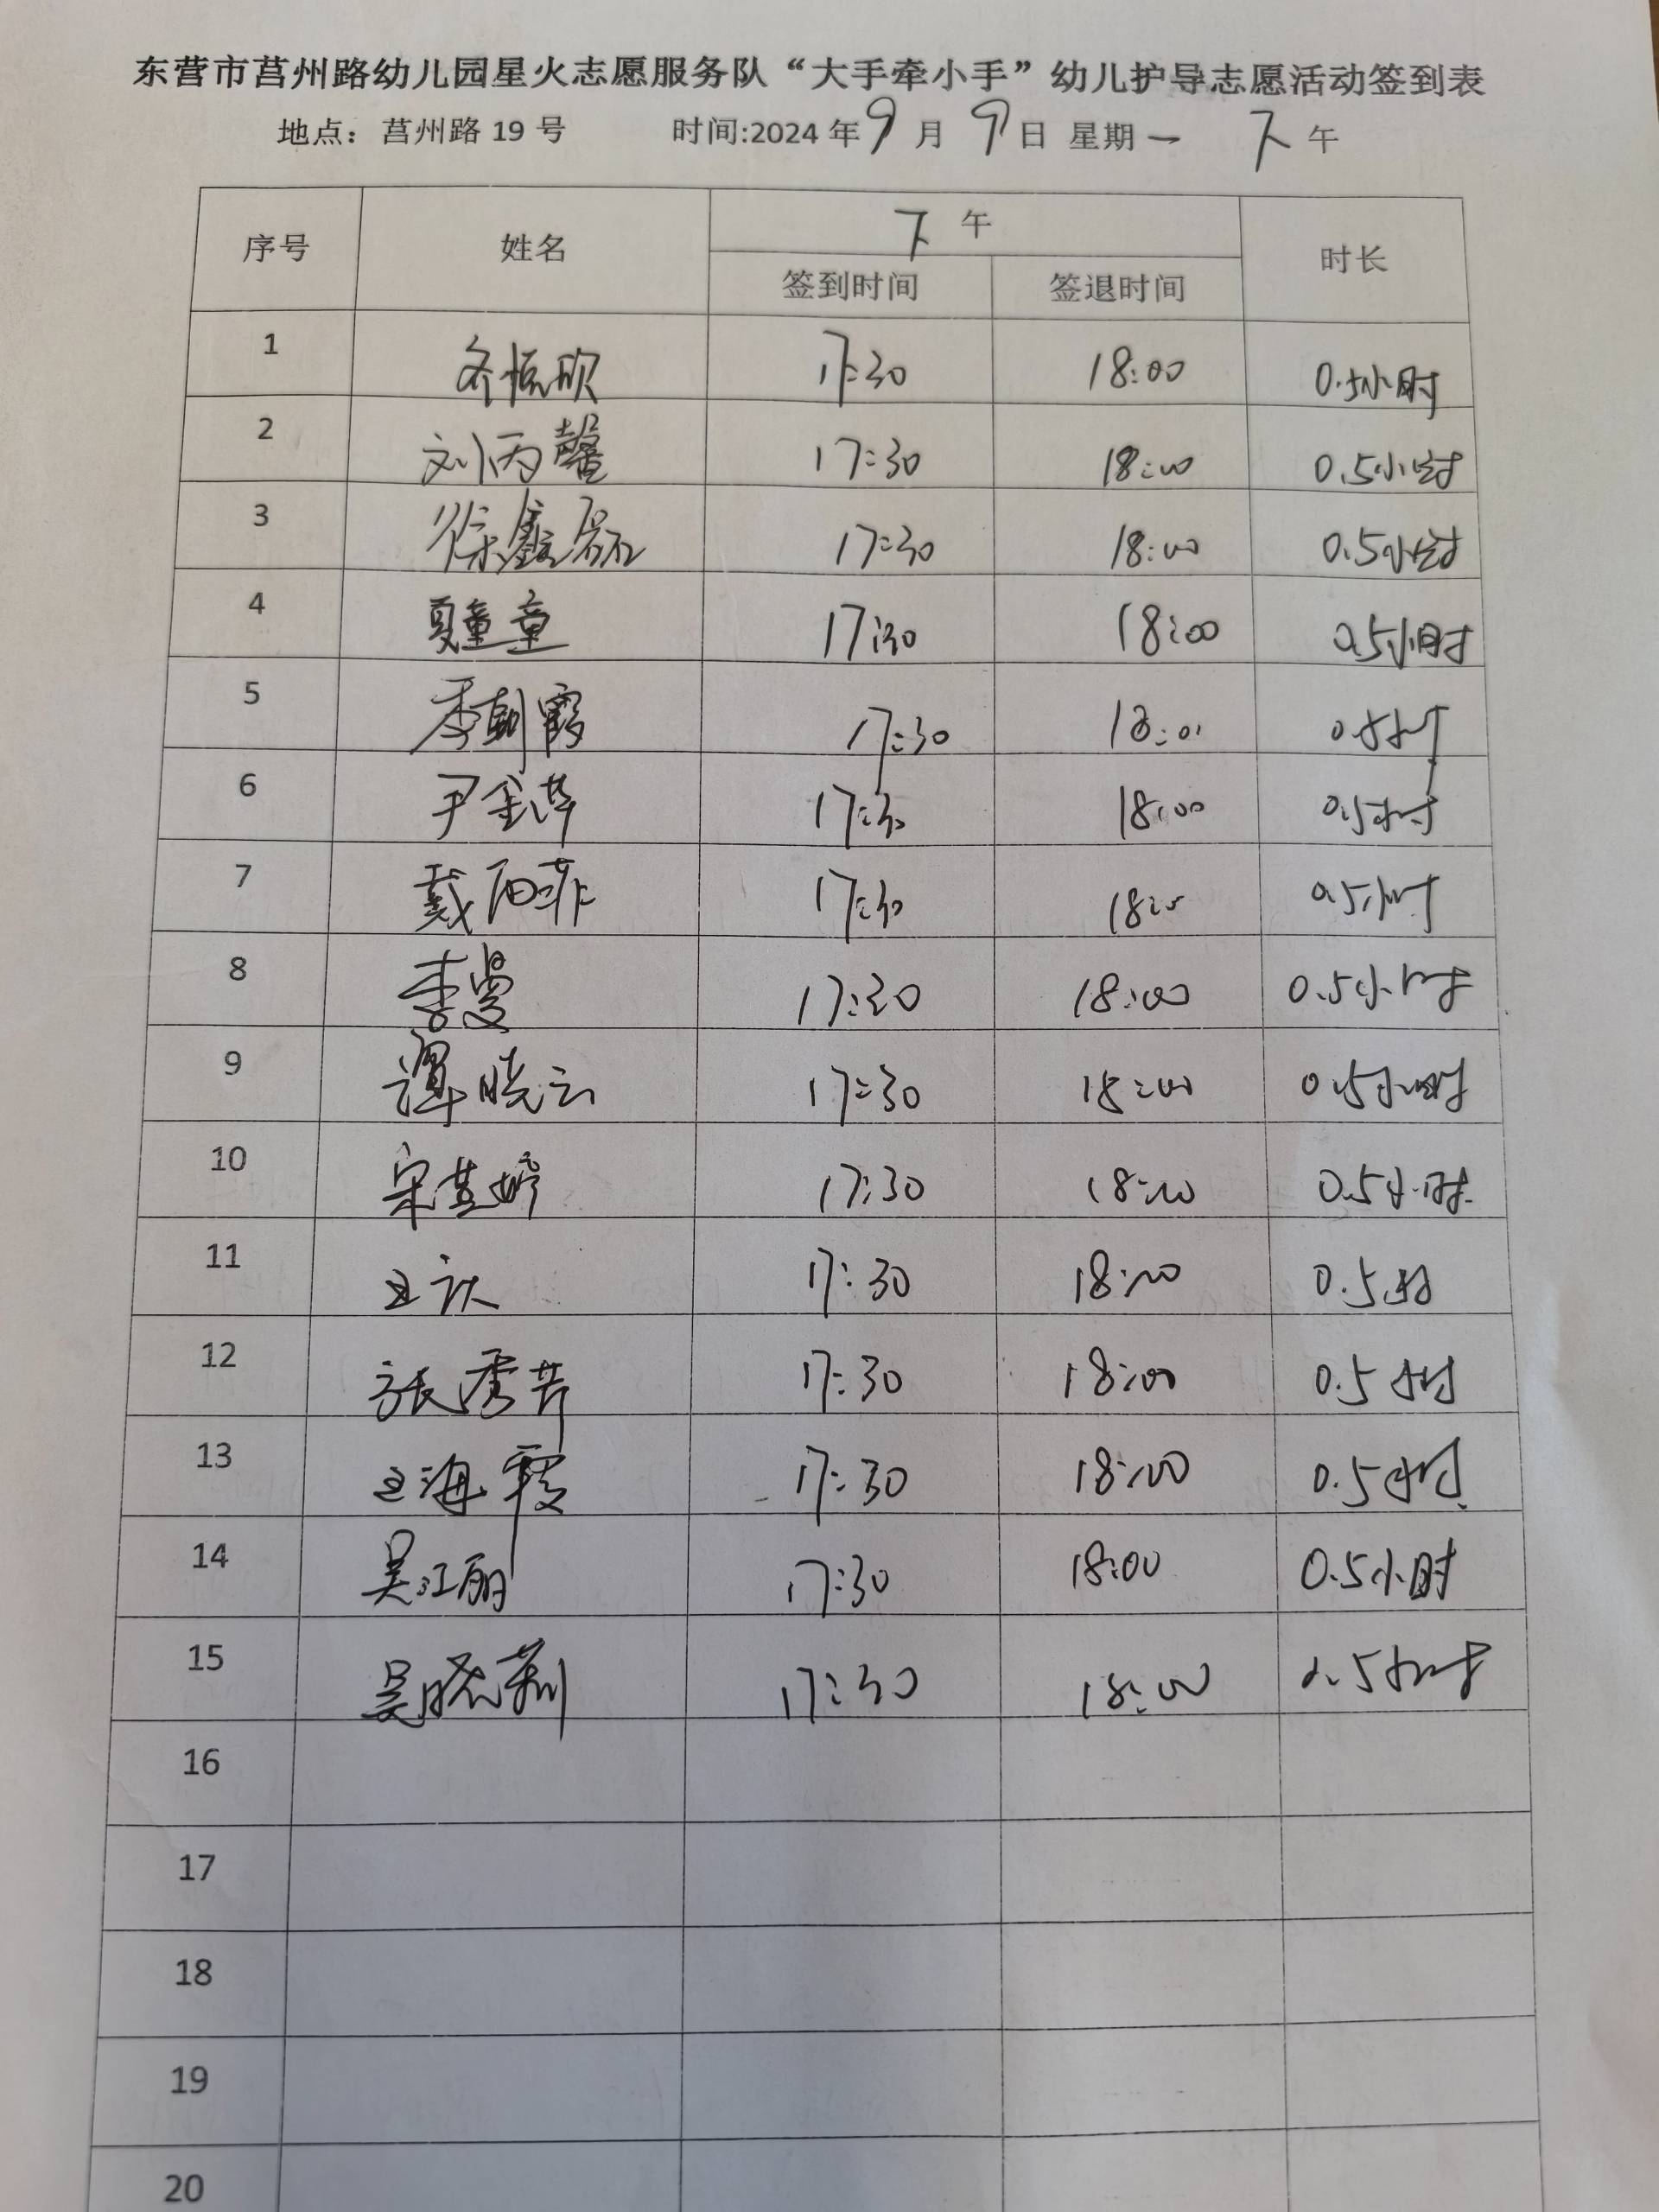 东营市莒州路幼儿园星火志愿服务队“大手牵小手”幼儿护导志愿活动签到表
地点：莒州路 19 号 时间:2024 年 9 月 9 日 星期一 下午
序号 姓名 下午 时长
签到时间 签退时间
1 17:30 18:00 0.5小时
2 刘丙馨 17:30 18:00 0.5小时
3 徐鑫磊 17:30 18:00 0.5小时
4 夏童童 17:30 18:00 0.5小时
5 季朝霞 17:30 18:00 0.5小时
6 尹金萍 17:30 18:00 0.5小时
7 戴阳菲 17:30 18:00 0.5小时
8 李曼 17:30 18:00 0.5小时
9 谭晓云 17:30 18:00 0.5小时
10 宋 婷 17:30 18:00 0.5小时
11 王 17:30 18:00 0.5小时
12 张秀芹 17:30 18:00 0.5小时
13 王海霞 17:30 18:00 0.5小时
14 吴江丽 17:30 18:00 0.5小时
15 吴晓莉 17:30 18:00 0.5小时
16
17
18
19
20